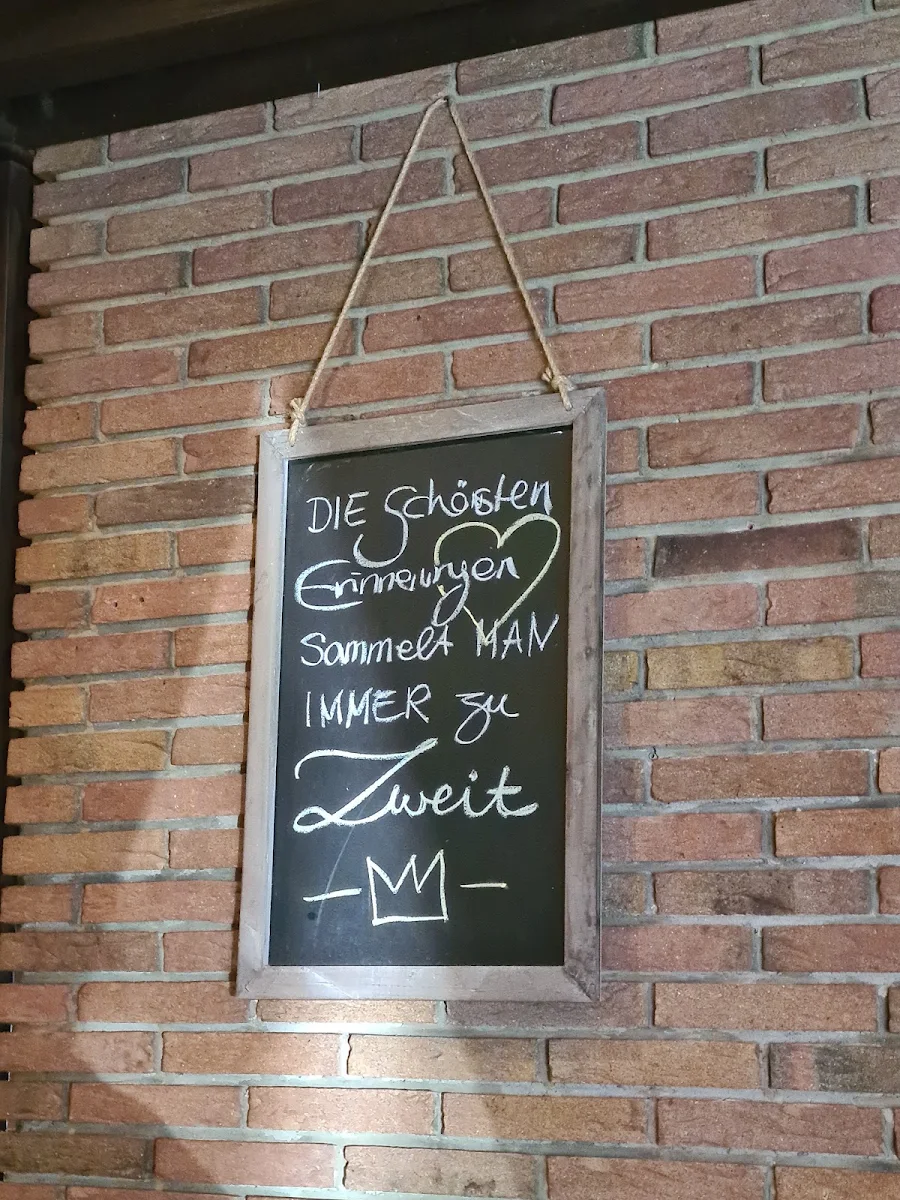 DIE schönsten
Erinnerungen
Sammelt MAN
IMMER zu
Zweit